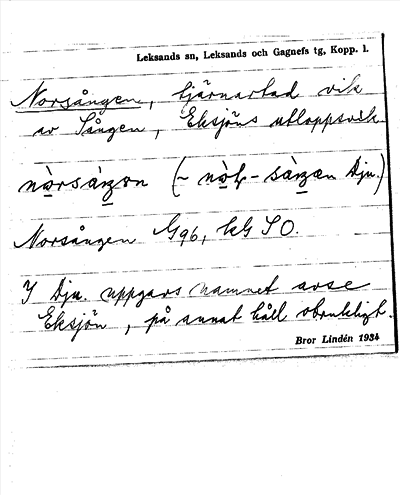 Leksands sn, Leksands och Gagnefs tg, Kopp. l.
Norsången, tjärnartad vik
av Sången, Eksjöns utloppsvik
nòrsàŋon (~ -sàŋæn Dju.)
Norsången G96, kG SO.
I Dju. uppgavs namnet avse
Eksjön, på annat håll obrukligt.
Bror Lindén 1934